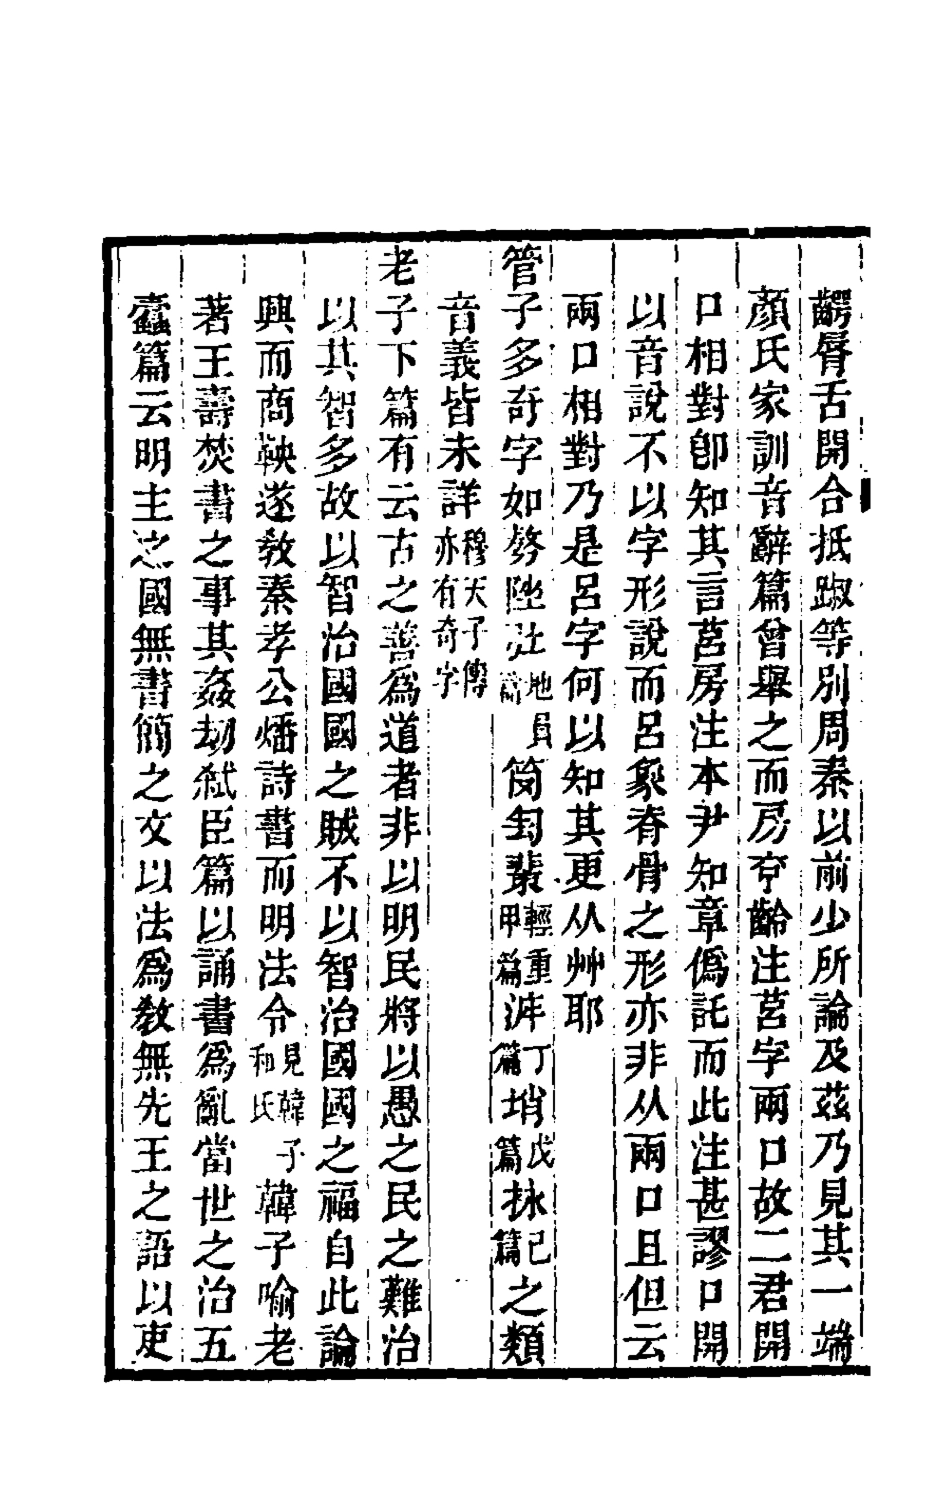 齶脣舌開合抵踧等別周秦以前少所論及茲乃見其一端
顏氏家訓音辭篇曾舉之而房𤣥齡注莒字兩口故二君開
口相對卽知其言莒房注本尹知章僞託而此注甚謬口開
以音說不以字形說而呂象脊骨之形亦非从兩口且但云
兩口相對乃是呂字何以知其更从艸耶
管子多奇字如 陞 地員篇 輕重甲篇 丁篇 㙜戊篇 己篇之類
音義皆未詳穆天子傳亦有奇字
老子下篇有云古之善爲道者非以明民將以愚之民之難治
以其智多故以智治國國之賊不以智治國國之福自此論
興而商鞅遂敎秦孝公燔詩書而明法令見韓子和氏韓子喻老
著王壽焚書之事其姦劫弒臣篇以誦書爲亂當世之治五
蠹篇云明主之國無書簡之文以法爲敎無先王之語以吏